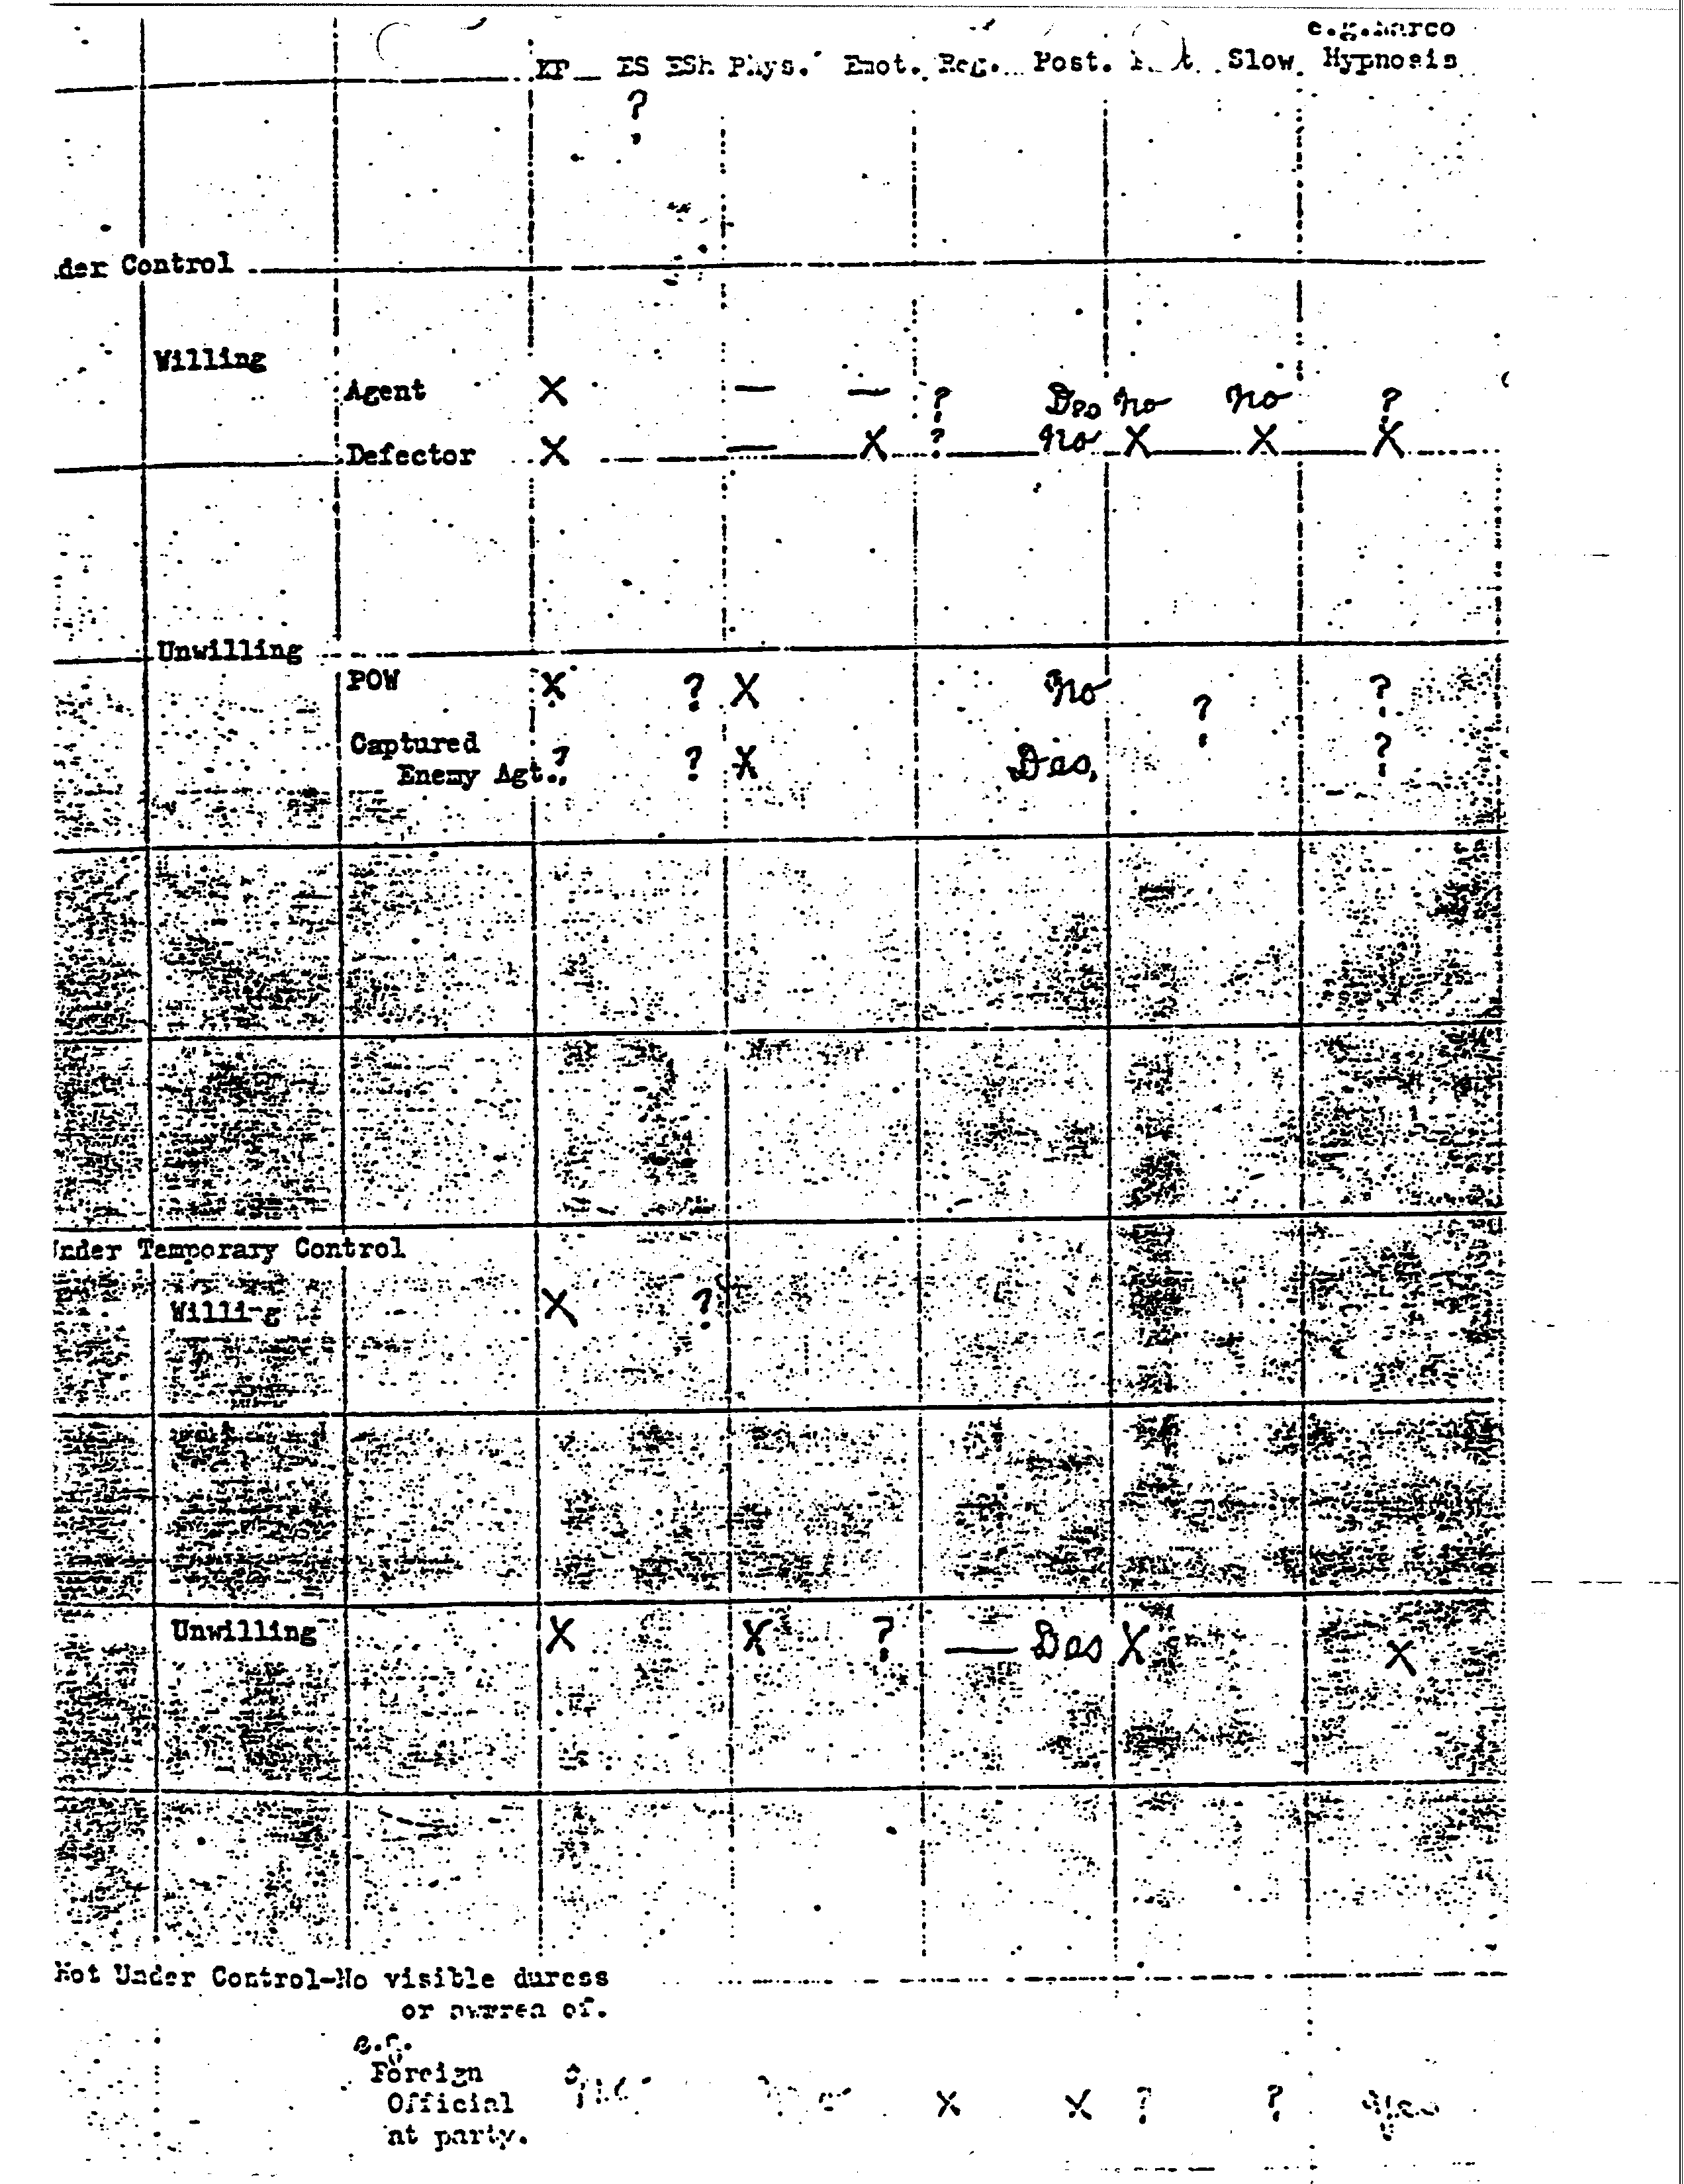 e.g.Narco
EP ES ESh Phys. Emot. Reg. Post. Slow Hypnosis
?
der Control
Willing
Agent X — — ? Des no no ?
Defector X — X ? no X X X
Unwilling
POW X ? X no ? ?
Captured
Enemy Agt. ? ? X Des, ?
Under Temporary Control
Willing X ?
Unwilling X X ? — Des X X
Not Under Control-No visible duress
or of.
e.g.
Foreign
Official X X ? ?
at party.